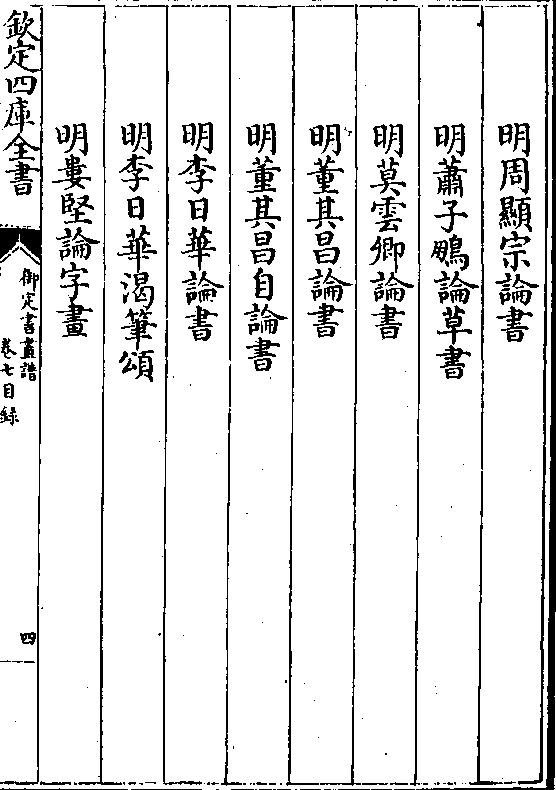 明周顯宗論書
明蕭子鵬論草書
明莫雲卿論書
明董其昌論書
明董其昌自論書
明李日華論書
明李日華渴筆頌
明婁堅論字畫
欽定四庫全書
御定書畫譜
卷七目錄
四